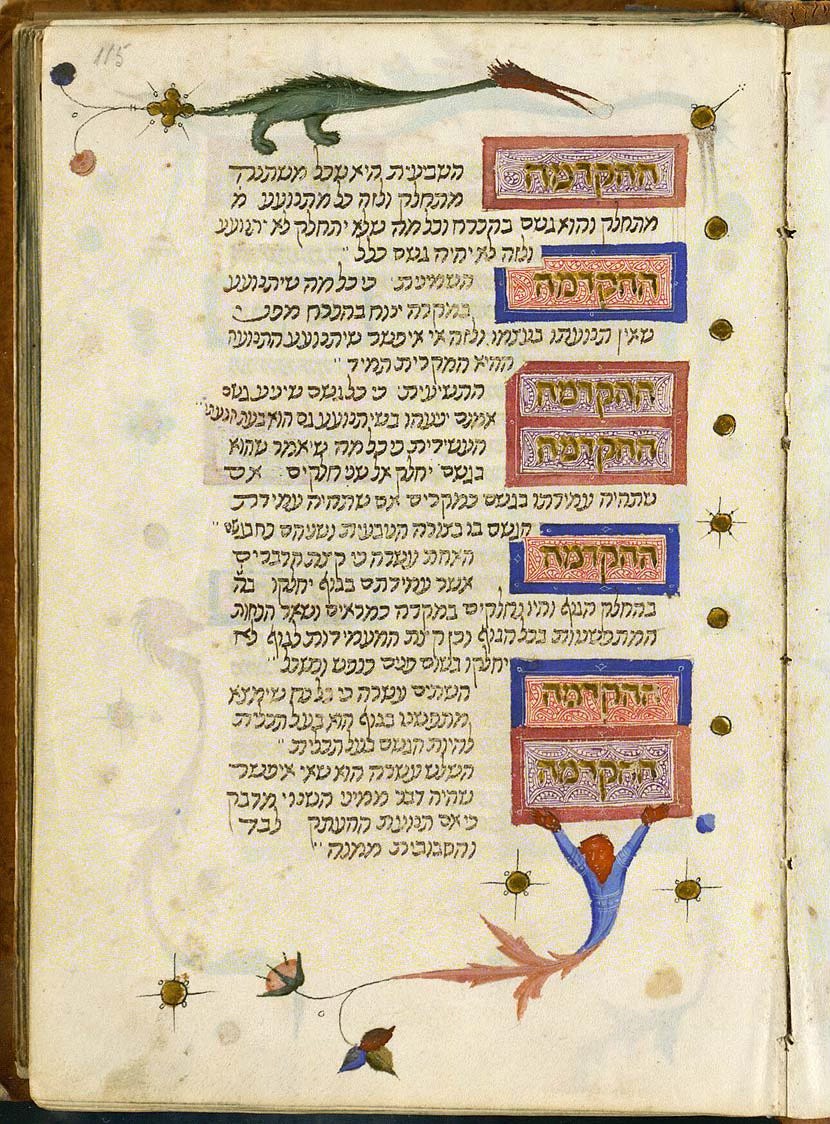 115
ההקדמה השביעית היא שכל משתנה
מתחלק ולזה כל מתנועע מ
מתחלק והוא גשם בהכרח וכל מה שלא יתחלק לא יתנועע
ולזה לא יהיה גשם כלל
ההקדמה השמינית כי כל מה שיתנועע
במקרה ינוח בהכרח מפני
שאין תנועתו בעצמו ולזה אי איפשר שיתנועע התנועה
ההיא המקרית תמיד
ההקדמה התשיעית כי כל גשם שיניע גשם
אמנם יניעהו בשיתנועע גם הוא בעת הניעו
ההקדמה העשירית כי כל מה שיאמר שהוא
בגשם יחלק אל שני חלקים אם
שתהיה עמידתו בגשם כמקרים אם שתהיה עמידת
הגשם בו כצורה הטבעית ושניהם כח בגשם
ההקדמה האחת עשרה כי קצת הדברים
אשר עמידתם בגוף יחלקו בה
בהחלק הגוף והיו נחלקים במקרה כמראים ושאר הכחות
המתפשטות בכל הגוף וכן קצת המעמידות לגוף לא
יחלקו בשום פנים כנפש ושכל
ההקדמה השתים עשרה כי כל כח שימצא
מתפשט בגוף הוא בעל תכלית
להיות הגשם בעל תכלית
ההקדמה השלש עשרה הוא שאי איפשר
שיהיה דבר ממיני השנוי מדבק
כי אם תנועת ההעתק לבד
והסבובית ממנה